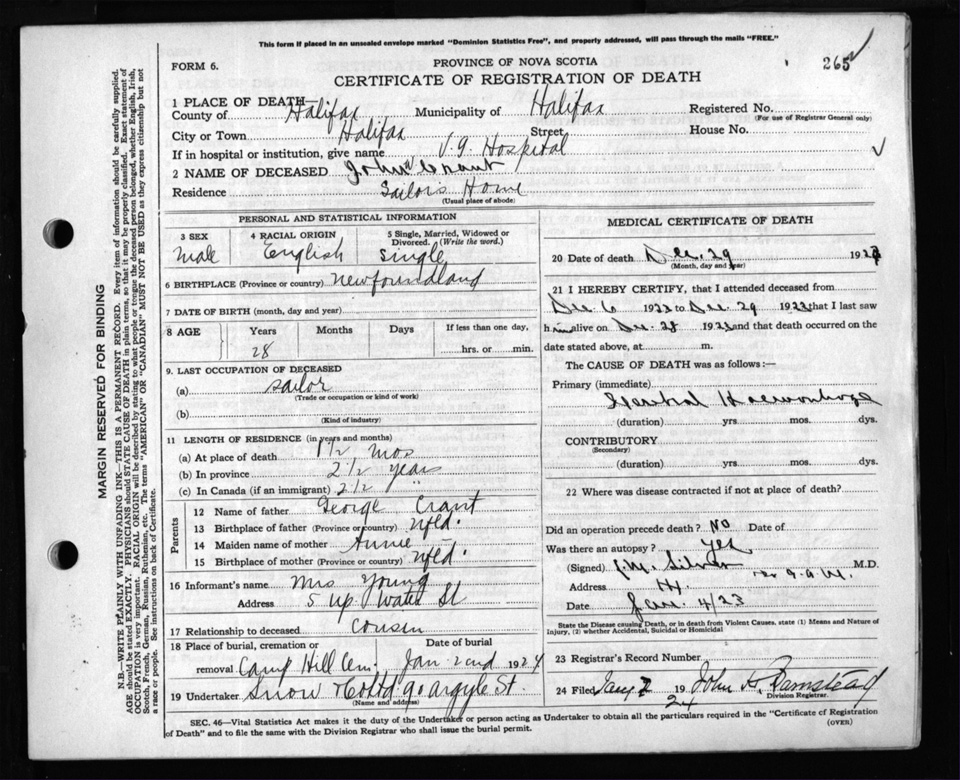 This form if placed in an unsealed envelope marked "Dominion Statistics Free", and properly addressed, will pass through the mails "FREE."
FORM 6.
PROVINCE OF NOVA SCOTIA
265
CERTIFICATE OF REGISTRATION OF DEATH
1 PLACE OF DEATH—
County of Halifax Municipality of Halifax Registered No.
(For use of Registrar General only)
City or Town Halifax Street House No.
If in hospital or institution, give name V.G. Hospital
2 NAME OF DECEASED John Crant
Residence Sailors Home
(Usual place of abode)
PERSONAL AND STATISTICAL INFORMATION
3 SEX 4 RACIAL ORIGIN 5 Single, Married, Widowed or Divorced. (Write the word.)
Male English Single
6 BIRTHPLACE (Province or country) Newfoundland
7 DATE OF BIRTH (month, day and year)
8 AGE Years Months Days If less than one day,
28 hrs. or min.
9. LAST OCCUPATION OF DECEASED
(a) Sailor
(Trade or occupation or kind of work)
(b)
(Kind of industry)
11 LENGTH OF RESIDENCE (in years and months)
(a) At place of death 1 1/2 mos
(b) In province 2 1/2 years
(c) In Canada (if an immigrant) 2 1/2 "
Parents
12 Name of father George Crant
13 Birthplace of father (Province or country) Nfld.
14 Maiden name of mother Annie
15 Birthplace of mother (Province or country) Nfld.
16 Informant's name Mrs Young
Address 5 Up. Water St
17 Relationship to deceased Cousin
18 Place of burial, cremation or removal Date of burial
Camp Hill Cem. Jan 2nd 1924
19 Undertaker Snow & Co Ltd 90 Argyle St.
(Name and address)
MEDICAL CERTIFICATE OF DEATH
20 Date of death Dec. 29 1923
(Month, day and year)
21 I HEREBY CERTIFY, that I attended deceased from
Dec. 6 1923 to Dec. 29 1923 that I last saw
him alive on Dec. 28 1923 and that death occurred on the
date stated above, at m.
The CAUSE OF DEATH was as follows:—
Primary (immediate)
Hemorrhage
(duration) yrs. mos. dys.
CONTRIBUTORY
(Secondary)
(duration) yrs. mos. dys.
22 Where was disease contracted if not at place of death?
Did an operation precede death? No Date of
Was there an autopsy? Yes
(Signed) Silver M.D.
Address Hx.
Date Jan. 4/23
State the Disease causing Death, or in death from Violent Causes. state (1) Means and Nature of Injury, (2) whether Accidental, Suicidal or Homicidal
23 Registrar's Record Number
24 Filed Jany 2 1924 John Barnstead
Division Registrar.
SEC. 46—Vital Statistics Act makes it the duty of the Undertaker or person acting as Undertaker to obtain all the particulars required in the "Certificate of Registration of Death" and to file the same with the Division Registrar who shall issue the burial permit.
(OVER)
MARGIN RESERVED FOR BINDING
N.B.—WRITE PLAINLY WITH UNFADING INK—THIS IS A PERMANENT RECORD. Every item of information should be carefully supplied.
AGE should be stated EXACTLY. PHYSICIANS should STATE CAUSE OF DEATH in plain terms, so that it may be properly classified. Exact statement of
OCCUPATION is very important. RACIAL ORIGIN will be described by stating to what people or tongue the deceased person belonged, whether English, Irish,
Scotch, French, German, Russian, Ruthenian, etc. The terms "AMERICAN" OR "CANADIAN" MUST NOT BE USED as they express citizenship but not
a race or people. See instructions on back of Certificate.